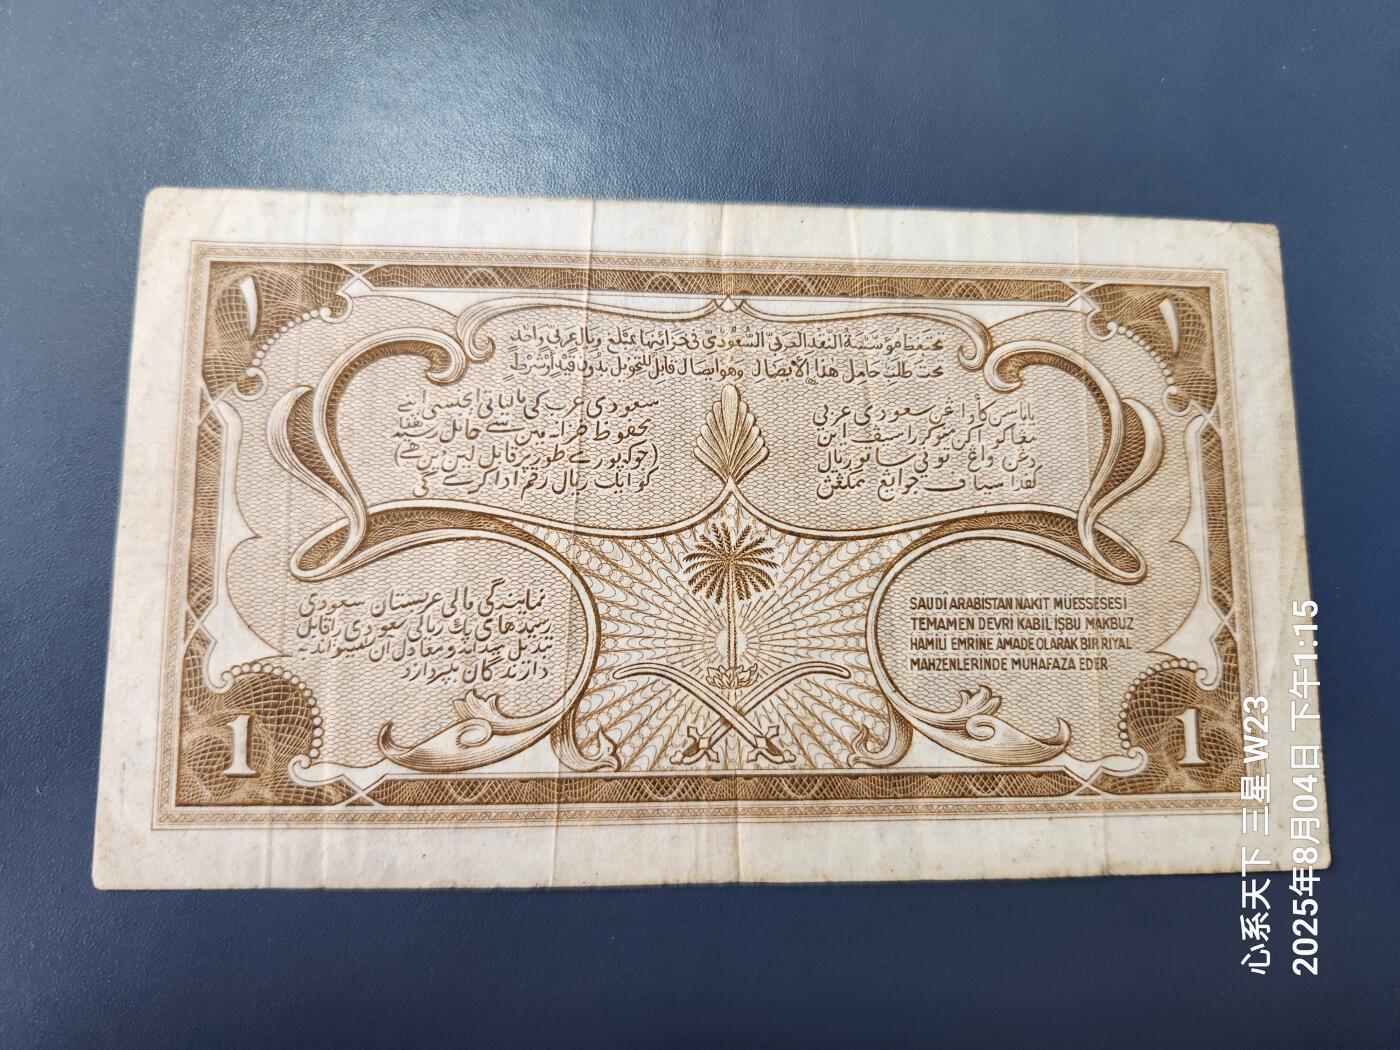 ١
١
تحتفظ مؤسسة النقد العربي السعودي في خزائنها بمبلغ ريال عربي واحد
تحت طلب حامل هذا الأيصال وهو ايصال قابل للتحويل بدون قيد أو شرط
سعودی عرب کی مالیاتی ایجنسی اپنے
محفوظ خزانہ میں سے حامل رسید هذا
(جو کہ پورے طور پر قابل لین دین ہے)
کو ایک ریال رقم ادا کرے گی
سعودي عربي
ريال
نمایندگی مالی عربستان سعودی
رسید های یک ریالی سعودی را قابل
تبدیل میداند و معادل آن
دارندگان بپردازد
SAUDÎ ARABİSTAN NAKİT MÜESSESESİ
TEMAMEN DEVRİ KABİL İŞBU MAKBUZ
HAMİLİ EMRİNE ÂMADE OLARAK BİR RİYAL
MAHZENLERİNDE MUHAFAZA EDER
1
1
心系天下 三星 W23
2025年8月04日 下午1:15